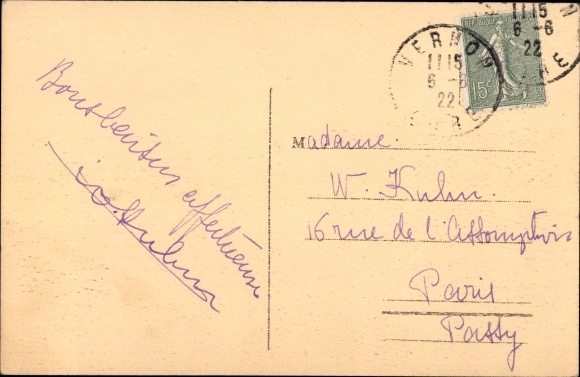 VERNON
11 15
6 - 6
22
EURE
RÉPUBLIQUE FRANÇAISE
15c
11 15
6 - 6
22
Madame
W. Kuhn.
16 rue de l'Assomption
Paris
Passy
affectueuse